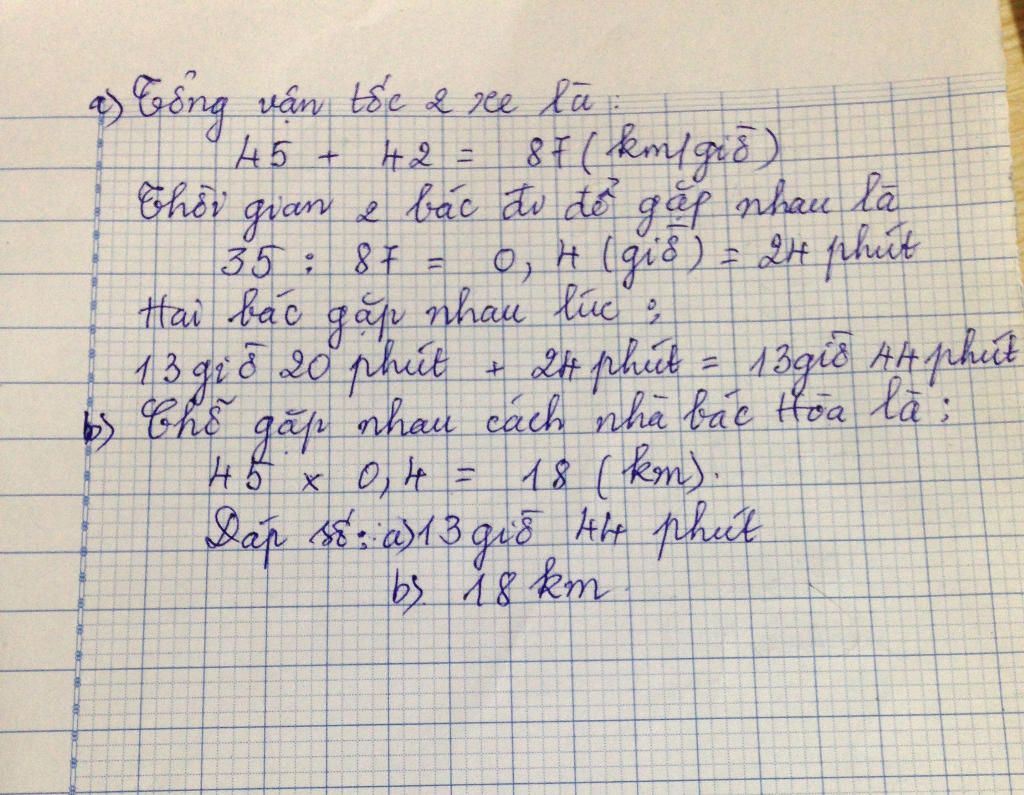 a) Tổng vận tốc 2 xe là:
45 + 42 = 87 (km/giờ)
Thời gian 2 bác đi để gặp nhau là
35 : 87 = 0,4 (giờ) = 24 phút
Hai bác gặp nhau lúc :
13 giờ 20 phút + 24 phút = 13 giờ 44 phút
b) Chỗ gặp nhau cách nhà bác Hòa là :
45 x 0,4 = 18 (km).
Đáp số : a) 13 giờ 44 phút
b) 18 km